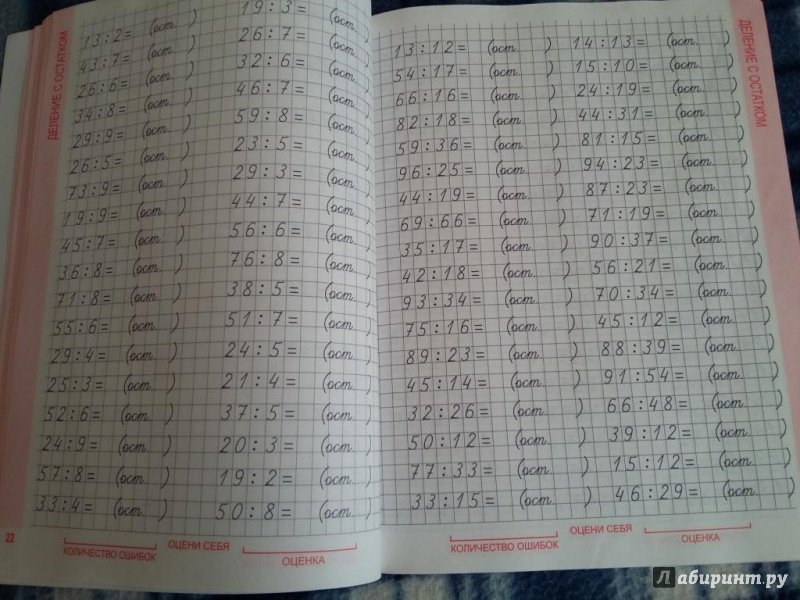 ДЕЛЕНИЕ С ОСТАТКОМ
13:2= (ост. ) 19:3= (ост. )
43:7= (ост. ) 26:7= (ост. )
26:6= (ост. ) 32:6= (ост. )
34:8= (ост. ) 46:7= (ост. )
29:9= (ост. ) 59:8= (ост. )
26:5= (ост. ) 23:5= (ост. )
73:9= (ост. ) 29:3= (ост. )
19:9= (ост. ) 44:7= (ост. )
45:7= (ост. ) 56:6= (ост. )
36:8= (ост. ) 76:8= (ост. )
71:8= (ост. ) 38:5= (ост. )
55:6= (ост. ) 51:7= (ост. )
29:4= (ост. ) 24:5= (ост. )
25:3= (ост. ) 21:4= (ост. )
52:6= (ост. ) 37:5= (ост. )
24:9= (ост. ) 20:3= (ост. )
57:8= (ост. ) 19:2= (ост. )
33:4= (ост. ) 50:8= (ост. )
22
ОЦЕНИ СЕБЯ
КОЛИЧЕСТВО ОШИБОК ОЦЕНКА
ДЕЛЕНИЕ С ОСТАТКОМ
13:12= (ост. ) 14:13= (ост. )
54:17= (ост. ) 15:10= (ост. )
66:16= (ост. ) 24:19= (ост. )
82:18= (ост. ) 44:31= (ост. )
59:36= (ост. ) 81:15= (ост. )
96:25= (ост. ) 94:23= (ост. )
44:19= (ост. ) 87:23= (ост. )
69:66= (ост. ) 71:19= (ост. )
35:17= (ост. ) 90:37= (ост. )
42:18= (ост. ) 56:21= (ост. )
93:34= (ост. ) 70:34= (ост. )
75:16= (ост. ) 45:12= (ост. )
89:23= (ост. ) 88:39= (ост. )
45:14= (ост. ) 91:54= (ост. )
32:26= (ост. ) 66:48= (ост. )
50:12= (ост. ) 39:12= (ост. )
77:33= (ост. ) 15:12= (ост. )
33:15= (ост. ) 46:29= (ост. )
ОЦЕНИ СЕБЯ
КОЛИЧЕСТВО ОШИБОК ОЦЕНКА
Лабиринт.ру